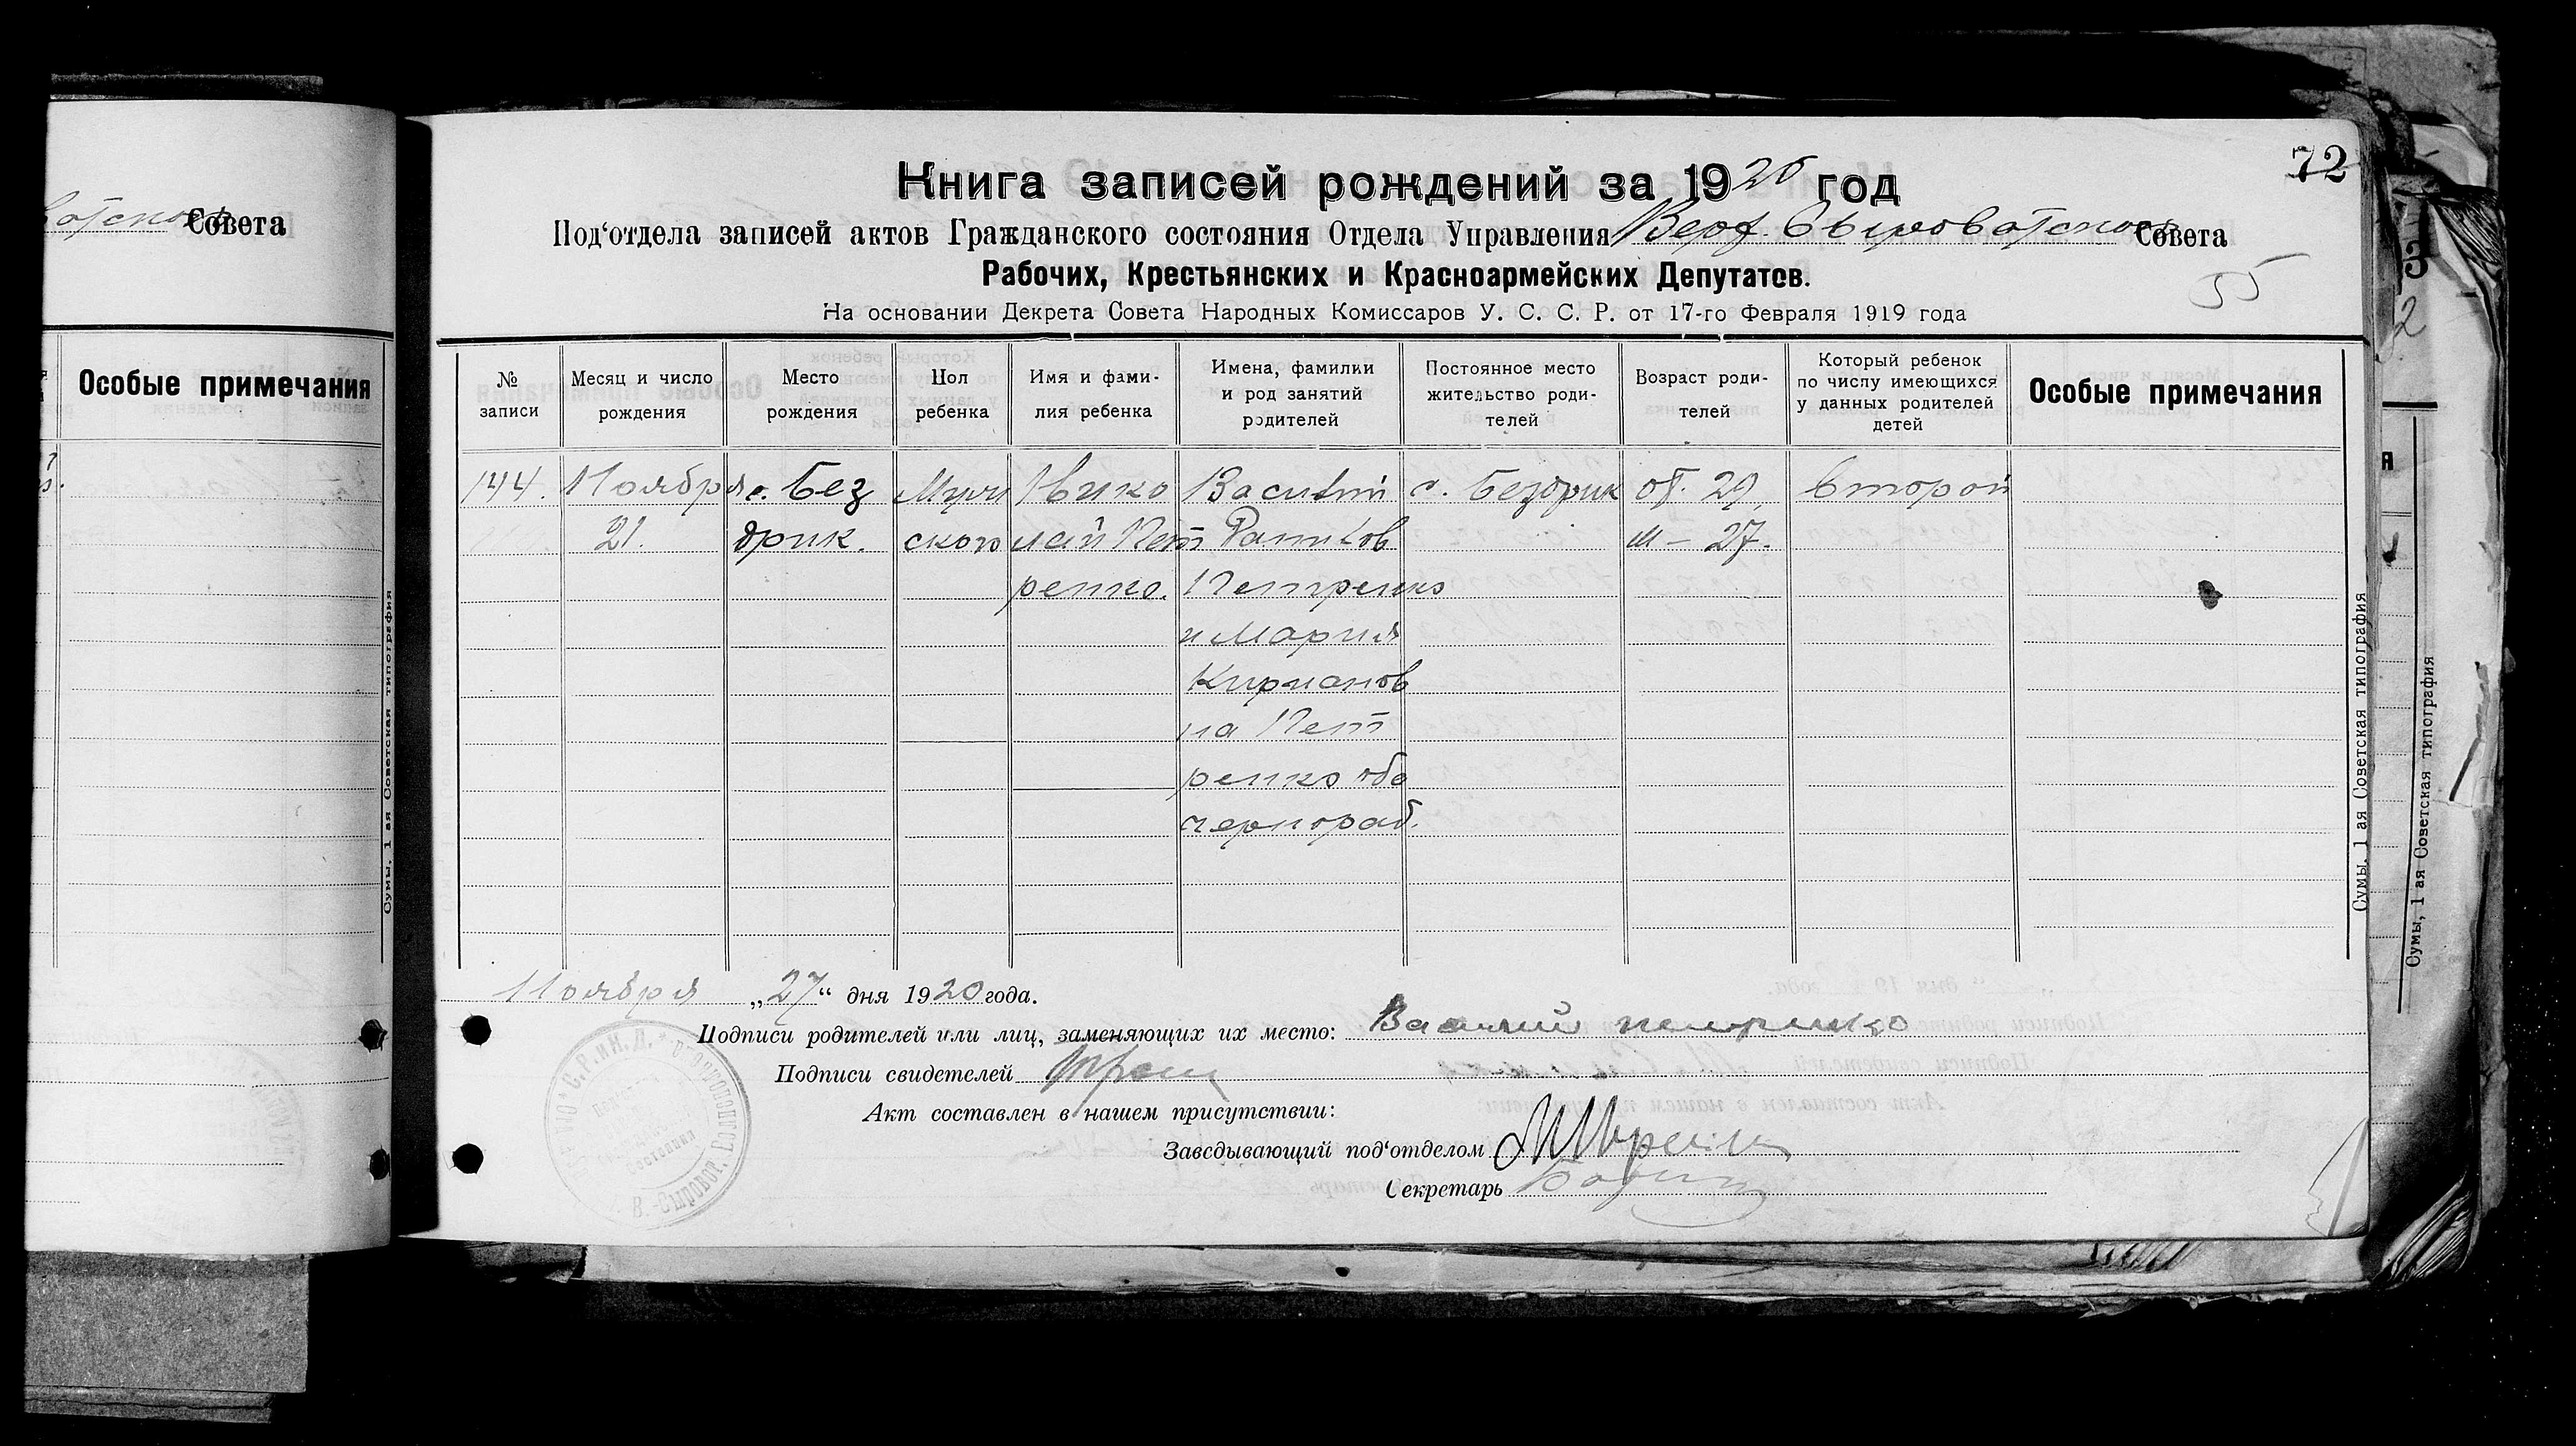 Совета
Особые примечания
Сумы, 1 ая Советская типография
72
Книга записей рождений за 1920 год
Под‘отдела записей актов Гражданского состояния Отдела Управления Верх. Сыроватского Совета
Рабочих, Крестьянских и Красноармейских Депутатов.
55
На основании Декрета Совета Народных Комиссаров У. С. С. Р. от 17-го Февраля 1919 года
№ записи
Месяц и число рождения
Место рождения
Пол ребенка
Имя и фами-
лия ребенка
Имена, фамилии
и род занятий
родителей
Постоянное место
жительство роди-
телей
Возраст роди-
телей
Который ребенок
по числу имеющихся
у данных родителей
детей
Особые примечания
144. Ноября с. Без Муж Нико Василий с. Бездрик от. 29, второй
21. дрик. ского лай Пет м – 27.
ренко. Петренко
и Мария
на Пет
ренко оба
чернораб.
Сумы, 1 ая Советская типография
Ноября „27“ дня 1920 года.
Подписи родителей или лиц, заменяющих их место: Василий петренко
Подписи свидетелей
Акт составлен в нашем присутствии:
Заведывающий под‘отделом
Секретарь
3
2
я
Сумы, 1 ая Советская типография